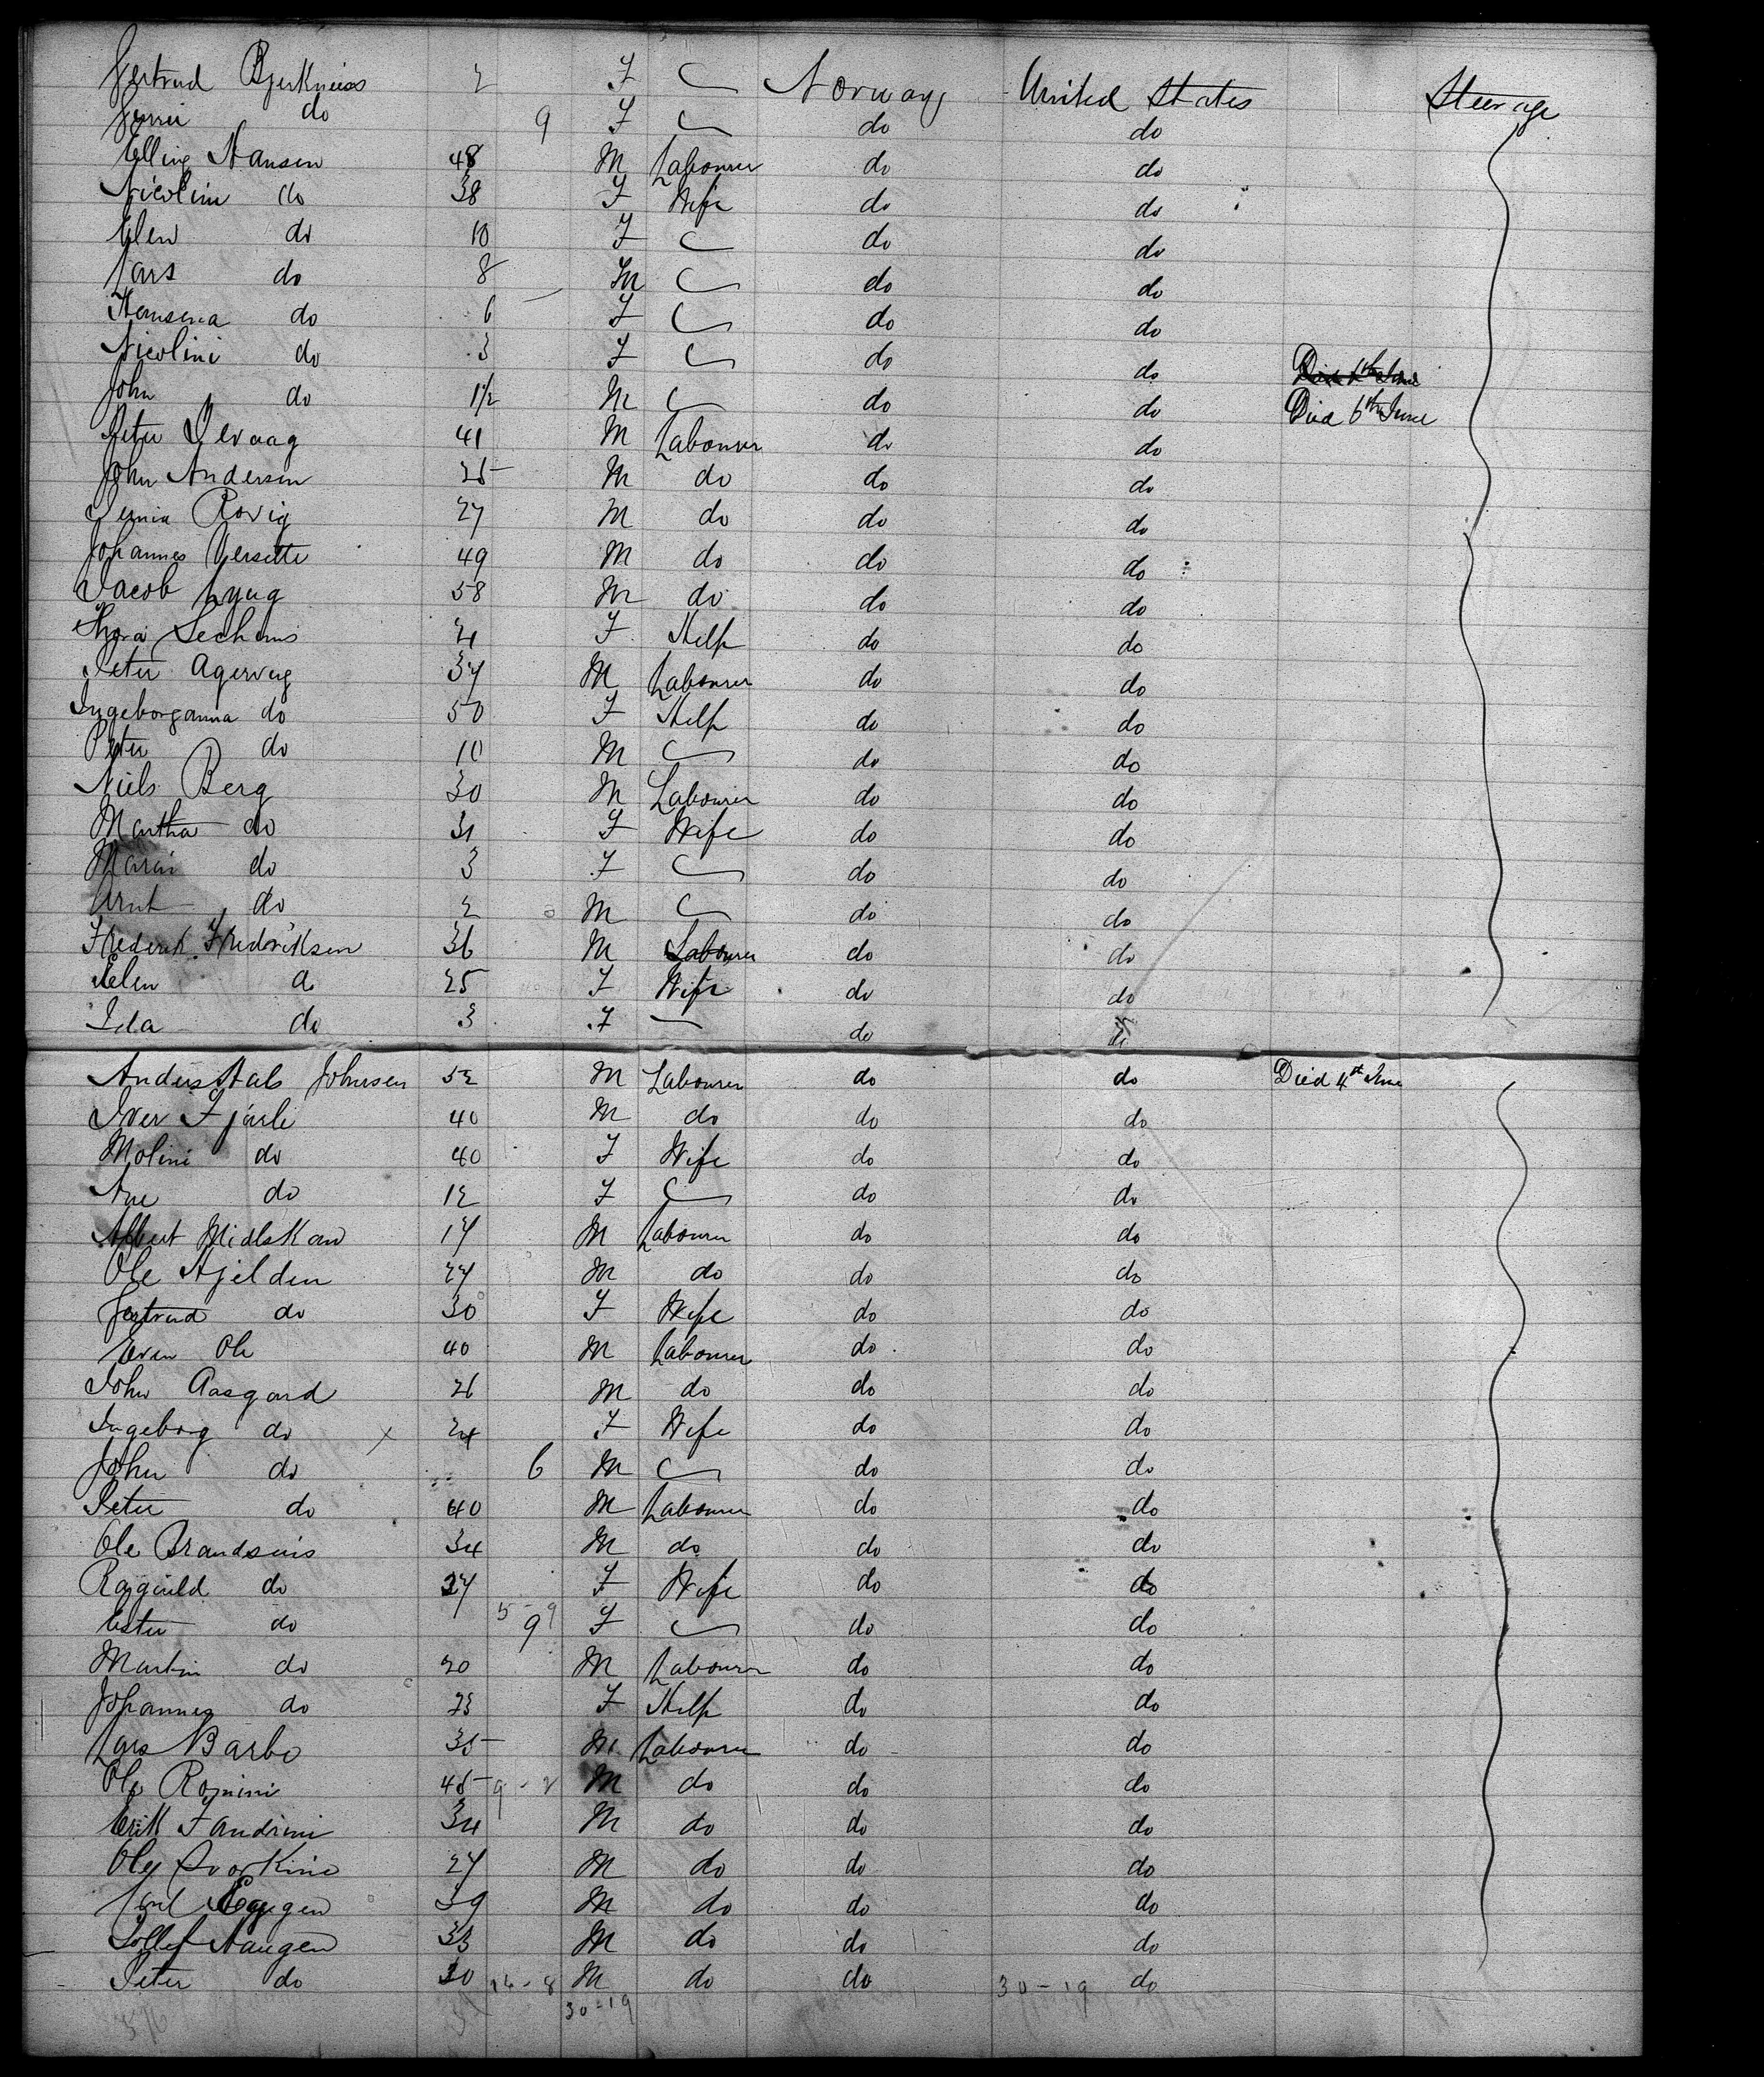 Gertrud Bjerkneiss 2 F Norway United States Steerage
do 9 F do do
Elling Hansen 48 M Labourer do do
Nicolini do 38 F Wife do do
Elen do 10 F do do
Lars do 8 M do do
Hansena do 6 F do do
Nicolini do 3 F do do
John do 1½ M do do Died 6th June
Peter 41 M Labourer do do
John Andersen 25 M do do do
Rovig 27 M do do do
Johannes Versette 49 M do do do
Jacob Lyng 58 M do do do
Thora 21 F Help do do
Peter Agervig 37 M Labourer do do
Ingeborganna do 50 F Help do do
Peter do 10 M do do
Niels Berg 30 M Labourer do do
Martha do 31 F Wife do do
Marin do 3 F do do
Arnt do 2 M do do
Frederik Fredriksen 36 M Labourer do do
Elen do 25 F Wife do do
Ida do 3 F do do
Anders Hals Johnsen 52 M Labourer do do Died 4th June
Iver Fjarli 40 M do do do
Molini do 40 F Wife do do
Ane do 12 F do do
Albert Midlskau 17 M Labourer do do
Ole Hjelden 27 M do do do
Gertrud do 30 F Wife do do
Even Ole 40 M Labourer do do
John Aasgard 26 M do do do
Ingeborg do x 24 F Wife do do
John do 6 M do do
Peter do 40 M Labourer do do
Ole Brandsnis 34 M do do do
Ragnild do 27 F Wife do do
Ester do 5-9 9 F do do
Martin do 20 M Labourer do do
Johannes do 23 F Help do do
Lars Barbo 35 M Labourer do do
Ole Romini 45 9-2 M do do do
Erik Fandrini 34 M do do do
Ole Svorkino 27 M do do do
Carl Eggen 39 M do do do
Tollef Haugen 33 M do do do
Peter do 30 14-8 M do do 30-19 do
30-19